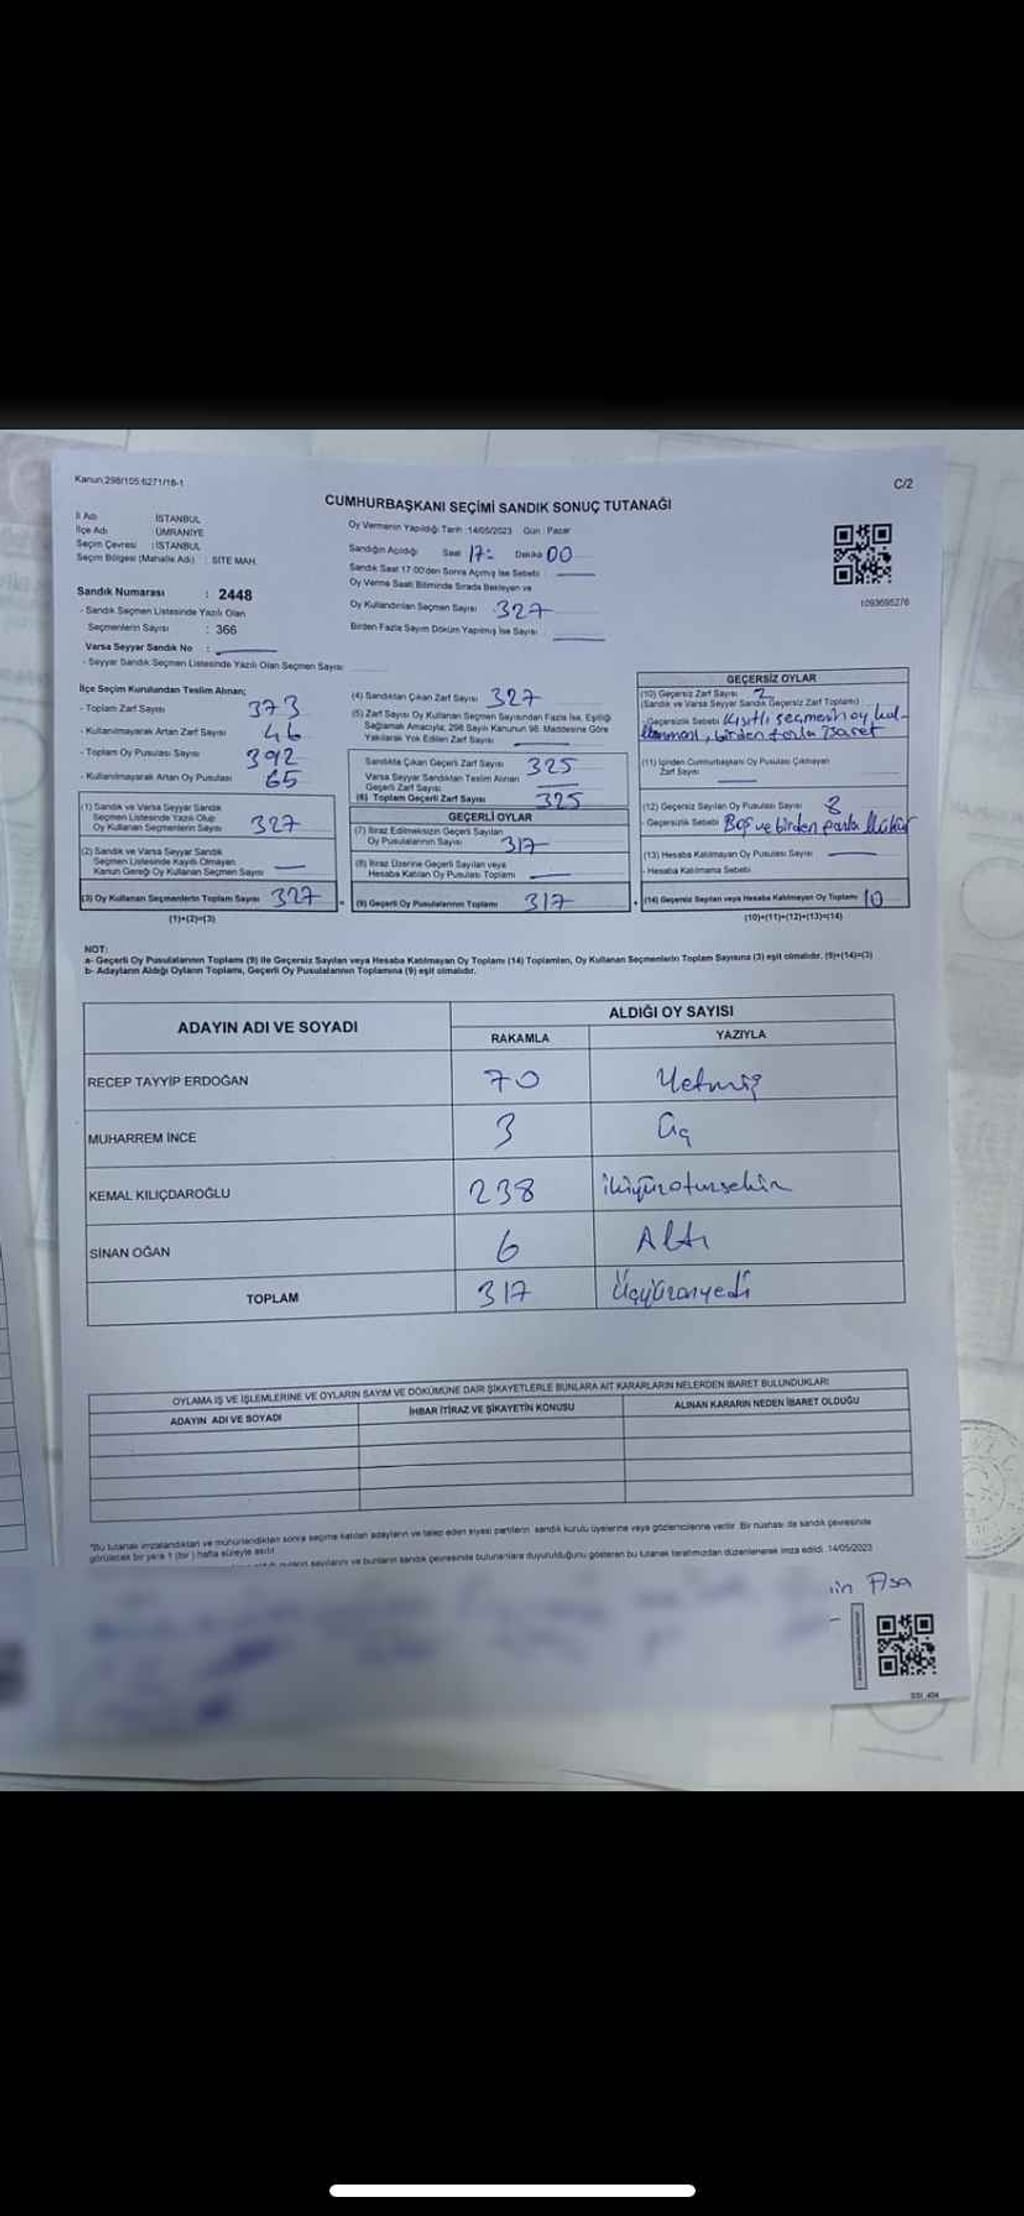 Kanun,298/105,6271/16-1
C/2
CUMHURBAŞKANI SEÇİMİ SANDIK SONUÇ TUTANAĞI
İl Adı İSTANBUL
İlçe Adı ÜMRANİYE
Seçim Çevresi : İSTANBUL
Seçim Bölgesi (Mahalle Adı) : SİTE MAH.
Oy Vermenin Yapıldığı Tarih :14/05/2023 Gün : Pazar
Sandığın Açıldığı Saat 17: Dakika 00
Sandık Saat 17:00'den Sonra Açılmış İse Sebebi :
Oy Verme Saati Bitiminde Sırada Bekleyen ve
Oy Kullandırılan Seçmen Sayısı : 327
Birden Fazla Sayım Döküm Yapılmış İse Sayısı :
1093695276
Sandık Numarası : 2448
- Sandık Seçmen Listesinde Yazılı Olan
Seçmenlerin Sayısı : 366
Varsa Seyyar Sandık No :
- Seyyar Sandık Seçmen Listesinde Yazılı Olan Seçmen Sayısı:
İlçe Seçim Kurulundan Teslim Alınan;
- Toplam Zarf Sayısı 373
- Kullanılmayarak Artan Zarf Sayısı 46
- Toplam Oy Pusulası Sayısı 392
- Kullanılmayarak Artan Oy Pusulası 65
(1) Sandık ve Varsa Seyyar Sandık
Seçmen Listesinde Yazılı Olup
Oy Kullanan Seçmenlerin Sayısı 327
(2) Sandık ve Varsa Seyyar Sandık
Seçmen Listesinde Kayıtlı Olmayan
Kanun Gereği Oy Kullanan Seçmen Sayısı
(3) Oy Kullanan Seçmenlerin Toplam Sayısı 327
(1)+(2)=(3)
(4) Sandıktan Çıkan Zarf Sayısı 327
(5) Zarf Sayısı Oy Kullanan Seçmen Sayısından Fazla İse, Eşitliği
Sağlamak Amacıyla; 298 Sayılı Kanunun 98. Maddesine Göre
Yakılarak Yok Edilen Zarf Sayısı
Sandıkta Çıkan Geçerli Zarf Sayısı 325
Varsa Seyyar Sandıktan Teslim Alınan
Geçerli Zarf Sayısı
(6) Toplam Geçerli Zarf Sayısı 325
GEÇERLİ OYLAR
(7) İtiraz Edilmeksizin Geçerli Sayılan
Oy Pusulalarının Sayısı 317
(8) İtiraz Üzerine Geçerli Sayılan veya
Hesaba Katılan Oy Pusulası Toplamı
(9) Geçerli Oy Pusulalarının Toplamı 317
GEÇERSİZ OYLAR
(10) Geçersiz Zarf Sayısı 2
(Sandık ve Varsa Seyyar Sandık Geçersiz Zarf Toplamı)
- Geçersizlik Sebebi Kısıtlı seçmenin oy kul-
lanması, birden fazla işaret
(11) İçinden Cumhurbaşkanı Oy Pusulası Çıkmayan
Zarf Sayısı
(12) Geçersiz Sayılan Oy Pusulası Sayısı 8
- Geçersizlik Sebebi Boş ve birden fazla Mühür
(13) Hesaba Katılmayan Oy Pusulası Sayısı
- Hesaba Katılmama Sebebi
(14) Geçersiz Sayılan veya Hesaba Katılmayan Oy Toplamı 10
(10)+(11)+(12)+(13)=(14)
NOT:
a- Geçerli Oy Pusulalarının Toplamı (9) ile Geçersiz Sayılan veya Hesaba Katılmayan Oy Toplamı (14) Toplamları, Oy Kullanan Seçmenlerin Toplam Sayısına (3) eşit olmalıdır. (9)+(14)=(3)
b- Adayların Aldığı Oyların Toplamı, Geçerli Oy Pusulalarının Toplamına (9) eşit olmalıdır.
ADAYIN ADI VE SOYADI
ALDIĞI OY SAYISI
RAKAMLA YAZIYLA
RECEP TAYYİP ERDOĞAN 70 Yetmiş
MUHARREM İNCE 3 Üç
KEMAL KILIÇDAROĞLU 238 ikiyüzotuzsekiz
SİNAN OĞAN 6 Altı
TOPLAM 317 Üçyüzonyedi
OYLAMA İŞ VE İŞLEMLERİNE VE OYLARIN SAYIM VE DÖKÜMÜNE DAİR ŞİKAYETLERLE BUNLARA AİT KARARLARIN NELERDEN İBARET BULUNDUKLARI
ADAYIN ADI VE SOYADI İHBAR İTİRAZ VE ŞİKAYETİN KONUSU ALINAN KARARIN NEDEN İBARET OLDUĞU
"Bu tutanak imzalandıktan ve mühürlendikten sonra seçime katılan adayların ve talep eden siyasi partilerin sandık kurulu üyelerine veya gözlemcilerine verilir. Bir nüshası da sandık çevresinde
görülecek bir yere 1 (bir) hafta süreyle asılır.
sayılarını ve bunların sandık çevresinde bulunanlara duyurulduğunu gösteren bu tutanak tarafımızdan düzenlenerek imza edildi. 14/05/2023